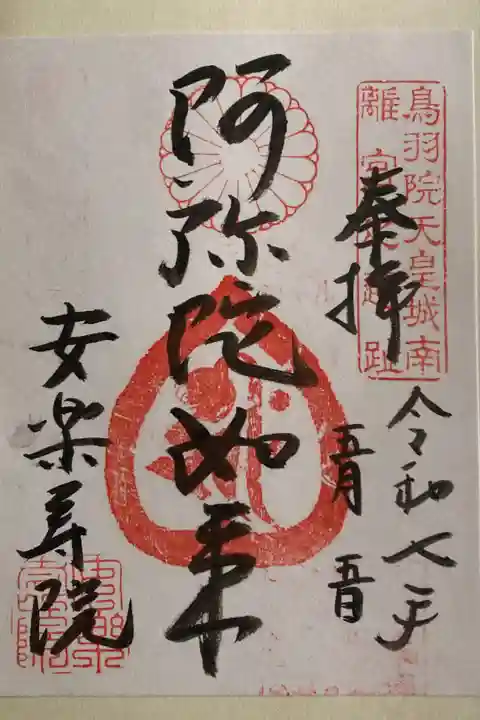 鳥羽院天皇城南
離宮趾
奉拝
令和七年
五月五日
阿弥陀如来
安楽寿院